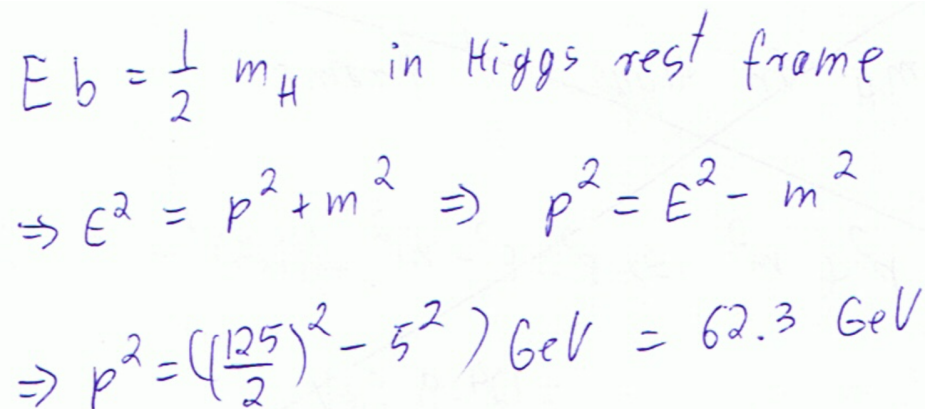 Eb = 1/2 m_H in Higgs rest frame
⇒ E² = p² + m² ⇒ p² = E² - m²
⇒ p² = ((125/2)² - 5²) GeV = 62.3 GeV